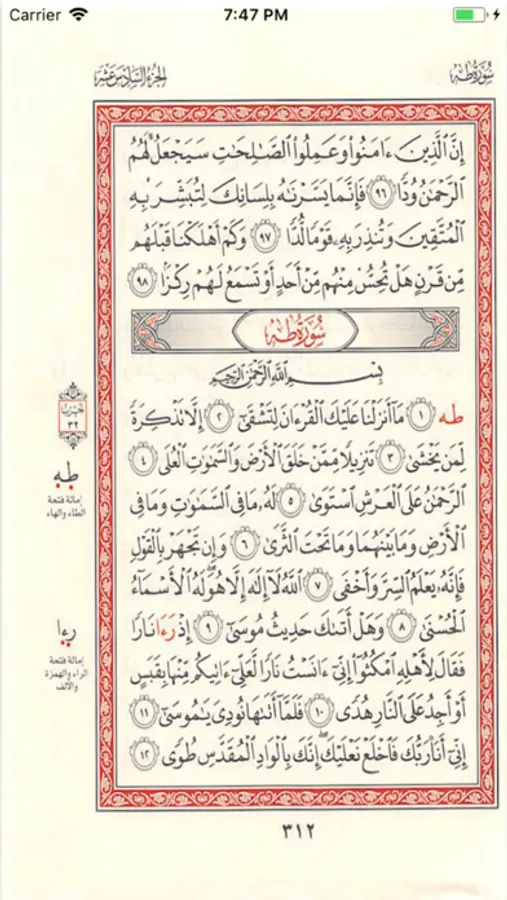 Carrier 7:47 PM
سُورَةُ طه
الجُزْءُ السَّادِسَ عَشَرَ
إِنَّ ٱلَّذِينَ ءَامَنُوا۟ وَعَمِلُوا۟ ٱلصَّـٰلِحَـٰتِ سَيَجْعَلُ لَهُمُ
ٱلرَّحْمَـٰنُ وُدًّا ٩٦ فَإِنَّمَا يَسَّرْنَـٰهُ بِلِسَانِكَ لِتُبَشِّرَ بِهِ
ٱلْمُتَّقِينَ وَتُنذِرَ بِهِۦ قَوْمًا لُّدًّا ٩٧ وَكَمْ أَهْلَكْنَا قَبْلَهُم
مِّن قَرْنٍ هَلْ تُحِسُّ مِنْهُم مِّنْ أَحَدٍ أَوْ تَسْمَعُ لَهُمْ رِكْزًۢا ٩٨
سُورَةُ طه
بِسْمِ ٱللَّهِ ٱلرَّحْمَـٰنِ ٱلرَّحِيمِ
طه ١ مَآ أَنزَلْنَا عَلَيْكَ ٱلْقُرْءَانَ لِتَشْقَىٰٓ ٢ إِلَّا تَذْكِرَةً
لِّمَن يَخْشَىٰ ٣ تَنزِيلًا مِّمَّنْ خَلَقَ ٱلْأَرْضَ وَٱلسَّمَـٰوَٰتِ ٱلْعُلَى ٤
ٱلرَّحْمَـٰنُ عَلَى ٱلْعَرْشِ ٱسْتَوَىٰ ٥ لَهُۥ مَا فِى ٱلسَّمَـٰوَٰتِ وَمَا فِى
ٱلْأَرْضِ وَمَا بَيْنَهُمَا وَمَا تَحْتَ ٱلثَّرَىٰ ٦ وَإِن تَجْهَرْ بِٱلْقَوْلِ
فَإِنَّهُۥ يَعْلَمُ ٱلسِّرَّ وَأَخْفَى ٧ ٱللَّهُ لَآ إِلَـٰهَ إِلَّا هُوَ لَهُ ٱلْأَسْمَآءُ
ٱلْحُسْنَىٰ ٨ وَهَلْ أَتَىٰكَ حَدِيثُ مُوسَىٰٓ ٩ إِذْ رَءَا نَارًا
فَقَالَ لِأَهْلِهِ ٱمْكُثُوٓا۟ إِنِّىٓ ءَانَسْتُ نَارًا لَّعَلِّىٓ ءَاتِيكُم مِّنْهَا بِقَبَسٍ
أَوْ أَجِدُ عَلَى ٱلنَّارِ هُدًى ١٠ فَلَمَّآ أَتَىٰهَا نُودِىَ يَـٰمُوسَىٰٓ ١١
إِنِّىٓ أَنَا۠ رَبُّكَ فَٱخْلَعْ نَعْلَيْكَ إِنَّكَ بِٱلْوَادِ ٱلْمُقَدَّسِ طُوًى ١٢
٣١٢
الحزب
٣٢
طه
إمالة فتحة
الطاء والهاء
رءا
إمالة فتحة
الراء والهمزة
والألف